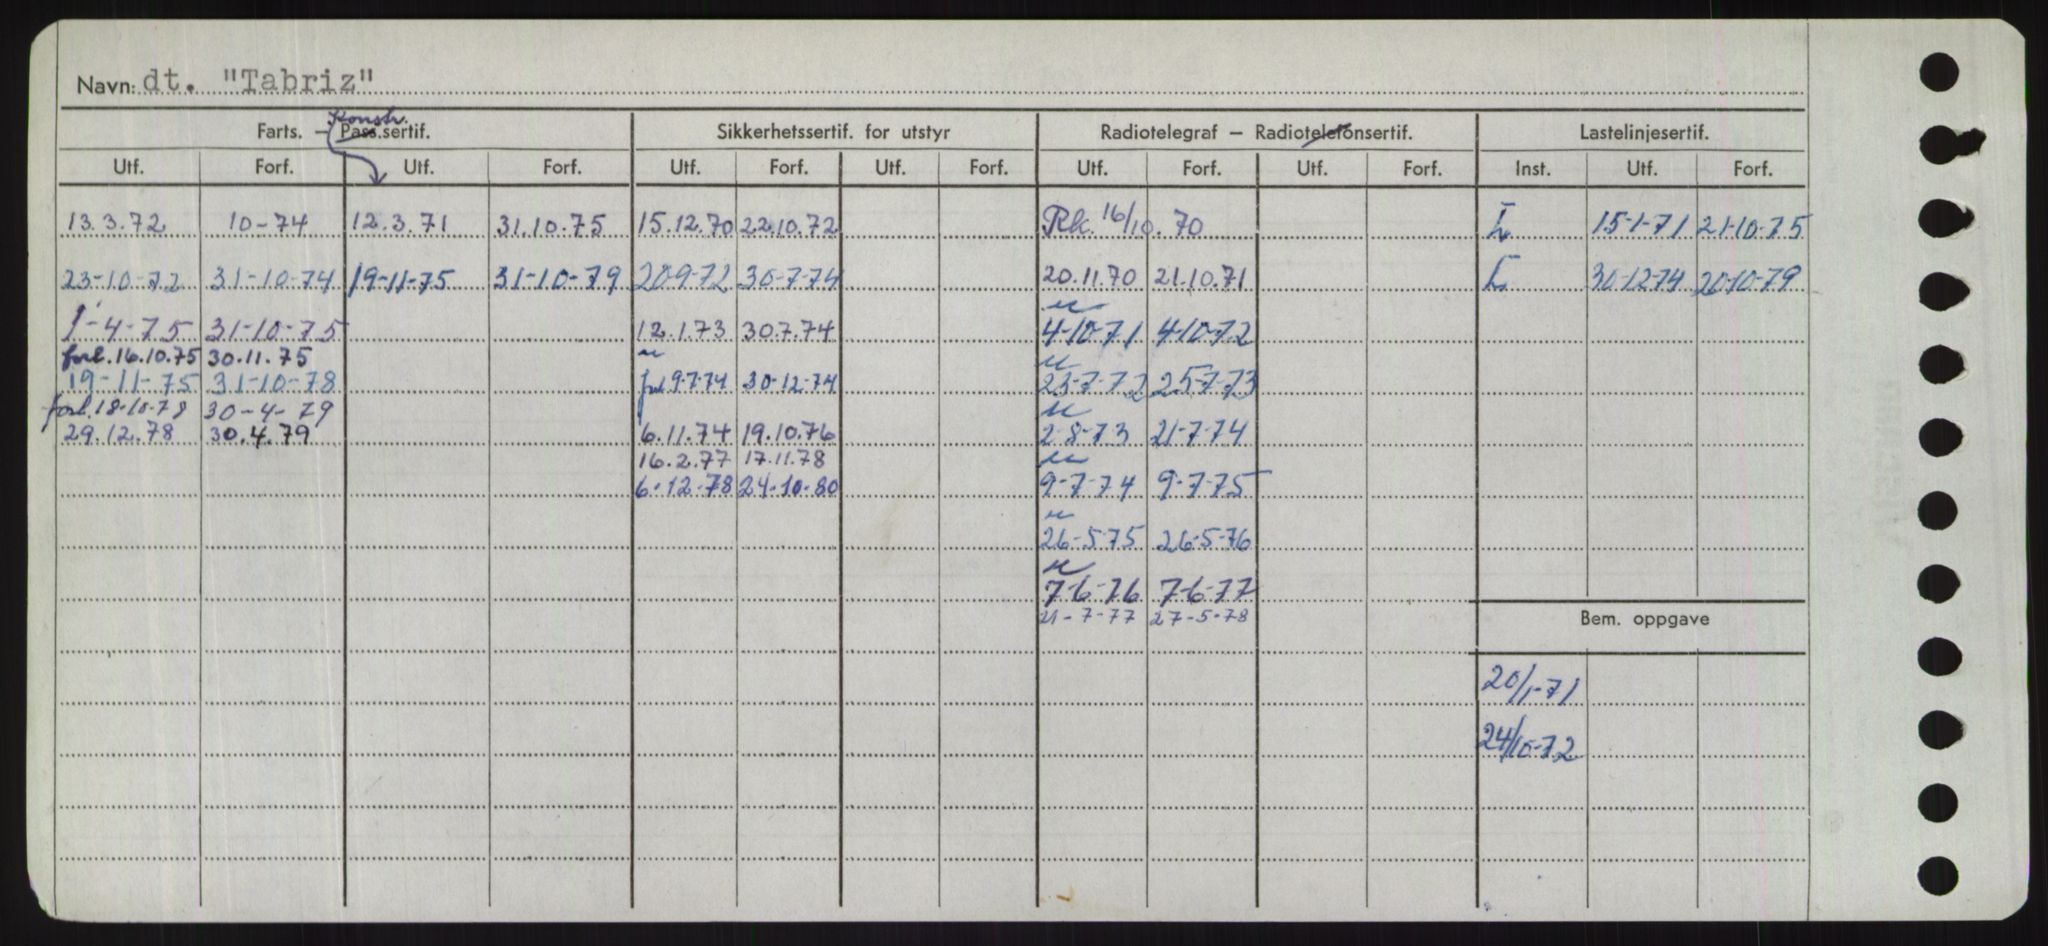 Navn: dt. "Tabriz"
Konstr.
Farts. — Pass.sertif. Sikkerhetssertif. for utstyr Radiotelegraf — Radiotelefonsertif. Lastelinjesertif.
Utf. Forf. Utf. Forf. Utf. Forf. Utf. Forf. Utf. Forf. Utf. Forf. Inst. Utf. Forf.
13.3.72 10-74 12.3.71 31.10.75 15.12.70 22.10.72 Rk. 16/10.70 L 15-1-71 21-10-75
23-10-72 31-10-74 19-11-75 31-10-79 20-9-72 30-7-74 20.11.70 21.10.71 L 30-12-74 20-10-79
1-4-75 31-10-75 12.1.73 30.7.74 4-10-71 4-10-72
forl. 16.10.75 30.11.75
19-11-75 31-10-78 forl 9-7-74 30-12-74 23-7-72 25-7-73
forl. 18-10-78 30-4-79
29.12.78 30.4.79 6.11.74 19.10.76 2-8-73 21-7-74
16.2.77 17.11.78
6.12.78 24.10.80 9-7-74 9-7-75
26-5-75 26-5-76
7-6-76 7-6-77
21-7-77 27-5-78
Bem. oppgave
20/1-71
24/10-72